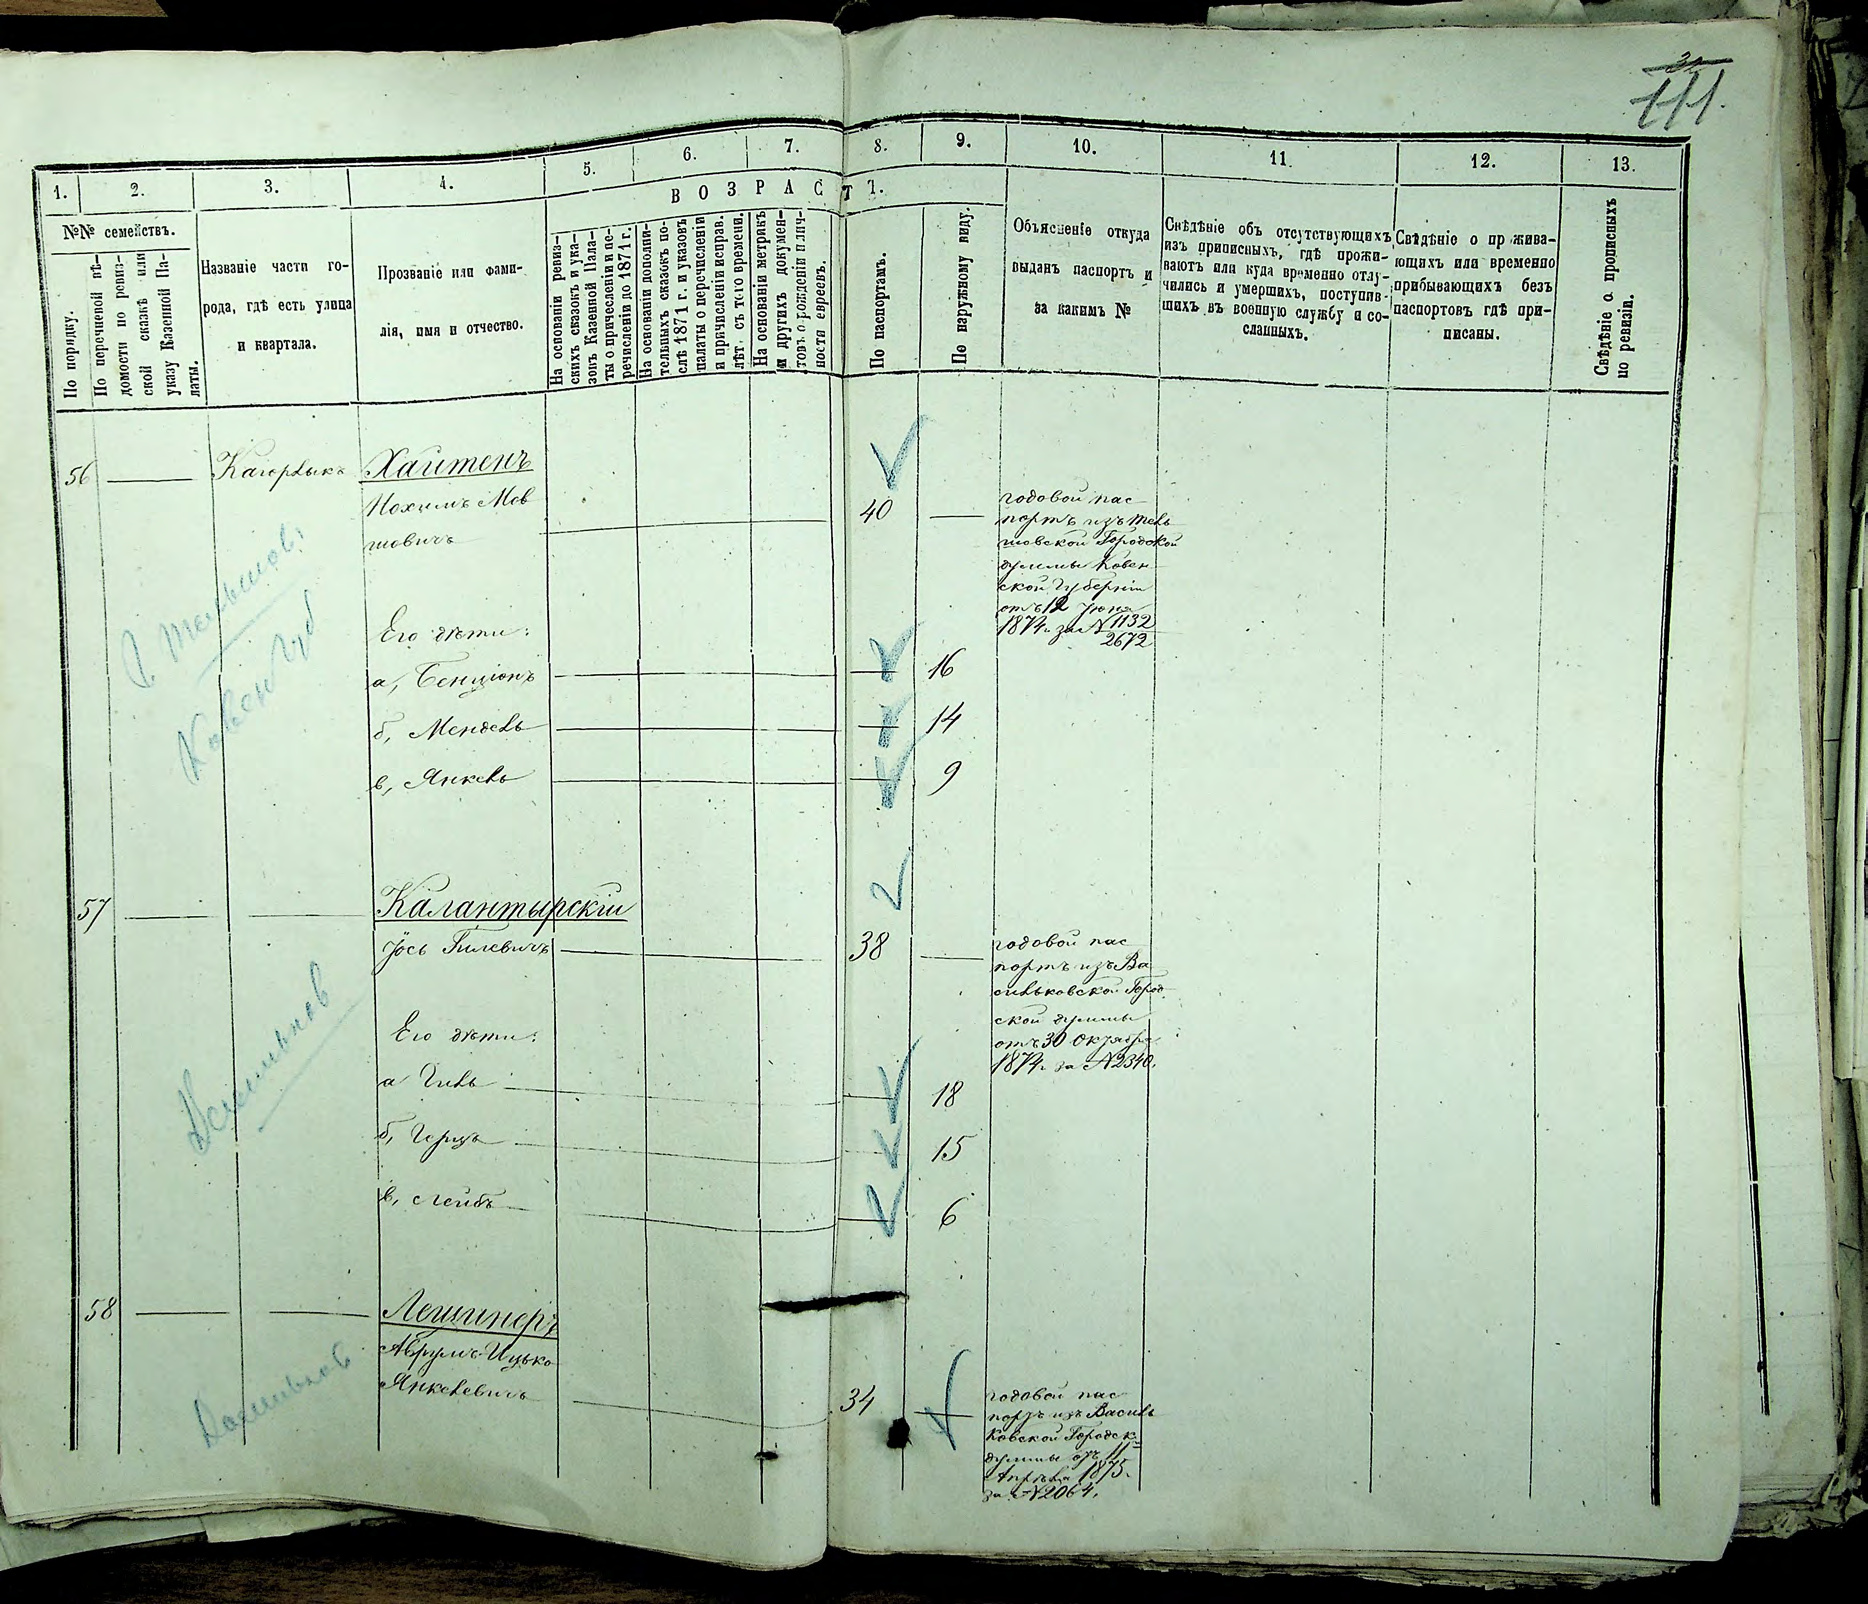 111.
1.
2.
3.
4.
5.
6.
7.
8.
9.
10.
11.
12.
13.
ВОЗРАСТ
№№ семействъ.
По порядку.
По перечневой вѣ-
домости по ревиз-
ской сказкѣ или
указу Казенной Па-
латы.
Названіе части го-
рода, гдѣ есть улица
и квартала.
Прозваніе или фами-
лія, имя и отчество.
На основаніи ревиз-
скихъ сказокъ и ука-
зовъ Казенной Пала-
ты о причисленіи и пе-
речисленіи до 1871 г.
На основаніи дополни-
тельныхъ сказокъ по-
слѣ 1871 г. и указовъ
палаты о перечисленіи
и причисленіи исправ.
лѣт. съ того времени.
На основаніи метрикъ
и другихъ докумен-
товъ о рожденіи и лич-
ности евреевъ.
По паспортамъ.
По наружному виду.
Объясненіе откуда
выданъ паспортъ и
за какимъ №
Свѣдѣніе объ отсутствующихъ
изъ приписныхъ, гдѣ прожи-
ваютъ или куда временно отлу-
чились и умершихъ, поступив-
шихъ въ военную службу и со-
сланныхъ.
Свѣдѣніе о прожива-
ющихъ или временно
прибывающихъ безъ
паспортовъ гдѣ при-
писаны.
Свѣдѣніе о прописныхъ
по ревизіи.
56
Кагорлыкъ
Хаитенъ
Нохимъ Мов
шовичъ
40
годовой пас
портъ изъ Тель
шовской Городской
думы Ковен
ской Губерніи
отъ 12 Іюня
1874 г. за №1132
2672
Его дѣти:
а, Бенціонъ
16
б, Мендель
14
в, Янкель
9
Тельшов.
Ковен губ
57
Калантырскій
Іось Гилевичъ
38
годовой пас
портъ изъ Ва
сильковской Город
ской думы
отъ 30 Октября
1874 г. за №2340.
Его дѣти:
а Гиль
18
б, Герцъ
15
в, Лейбъ
6
Васильков
58
Лешинеръ
Аврумъ-Ицько
Янкелевичъ
34
годовой пас
портъ изъ Василь
ковской Городск
думы отъ 11
Апрѣля 1875.
за №2064.
Васильков